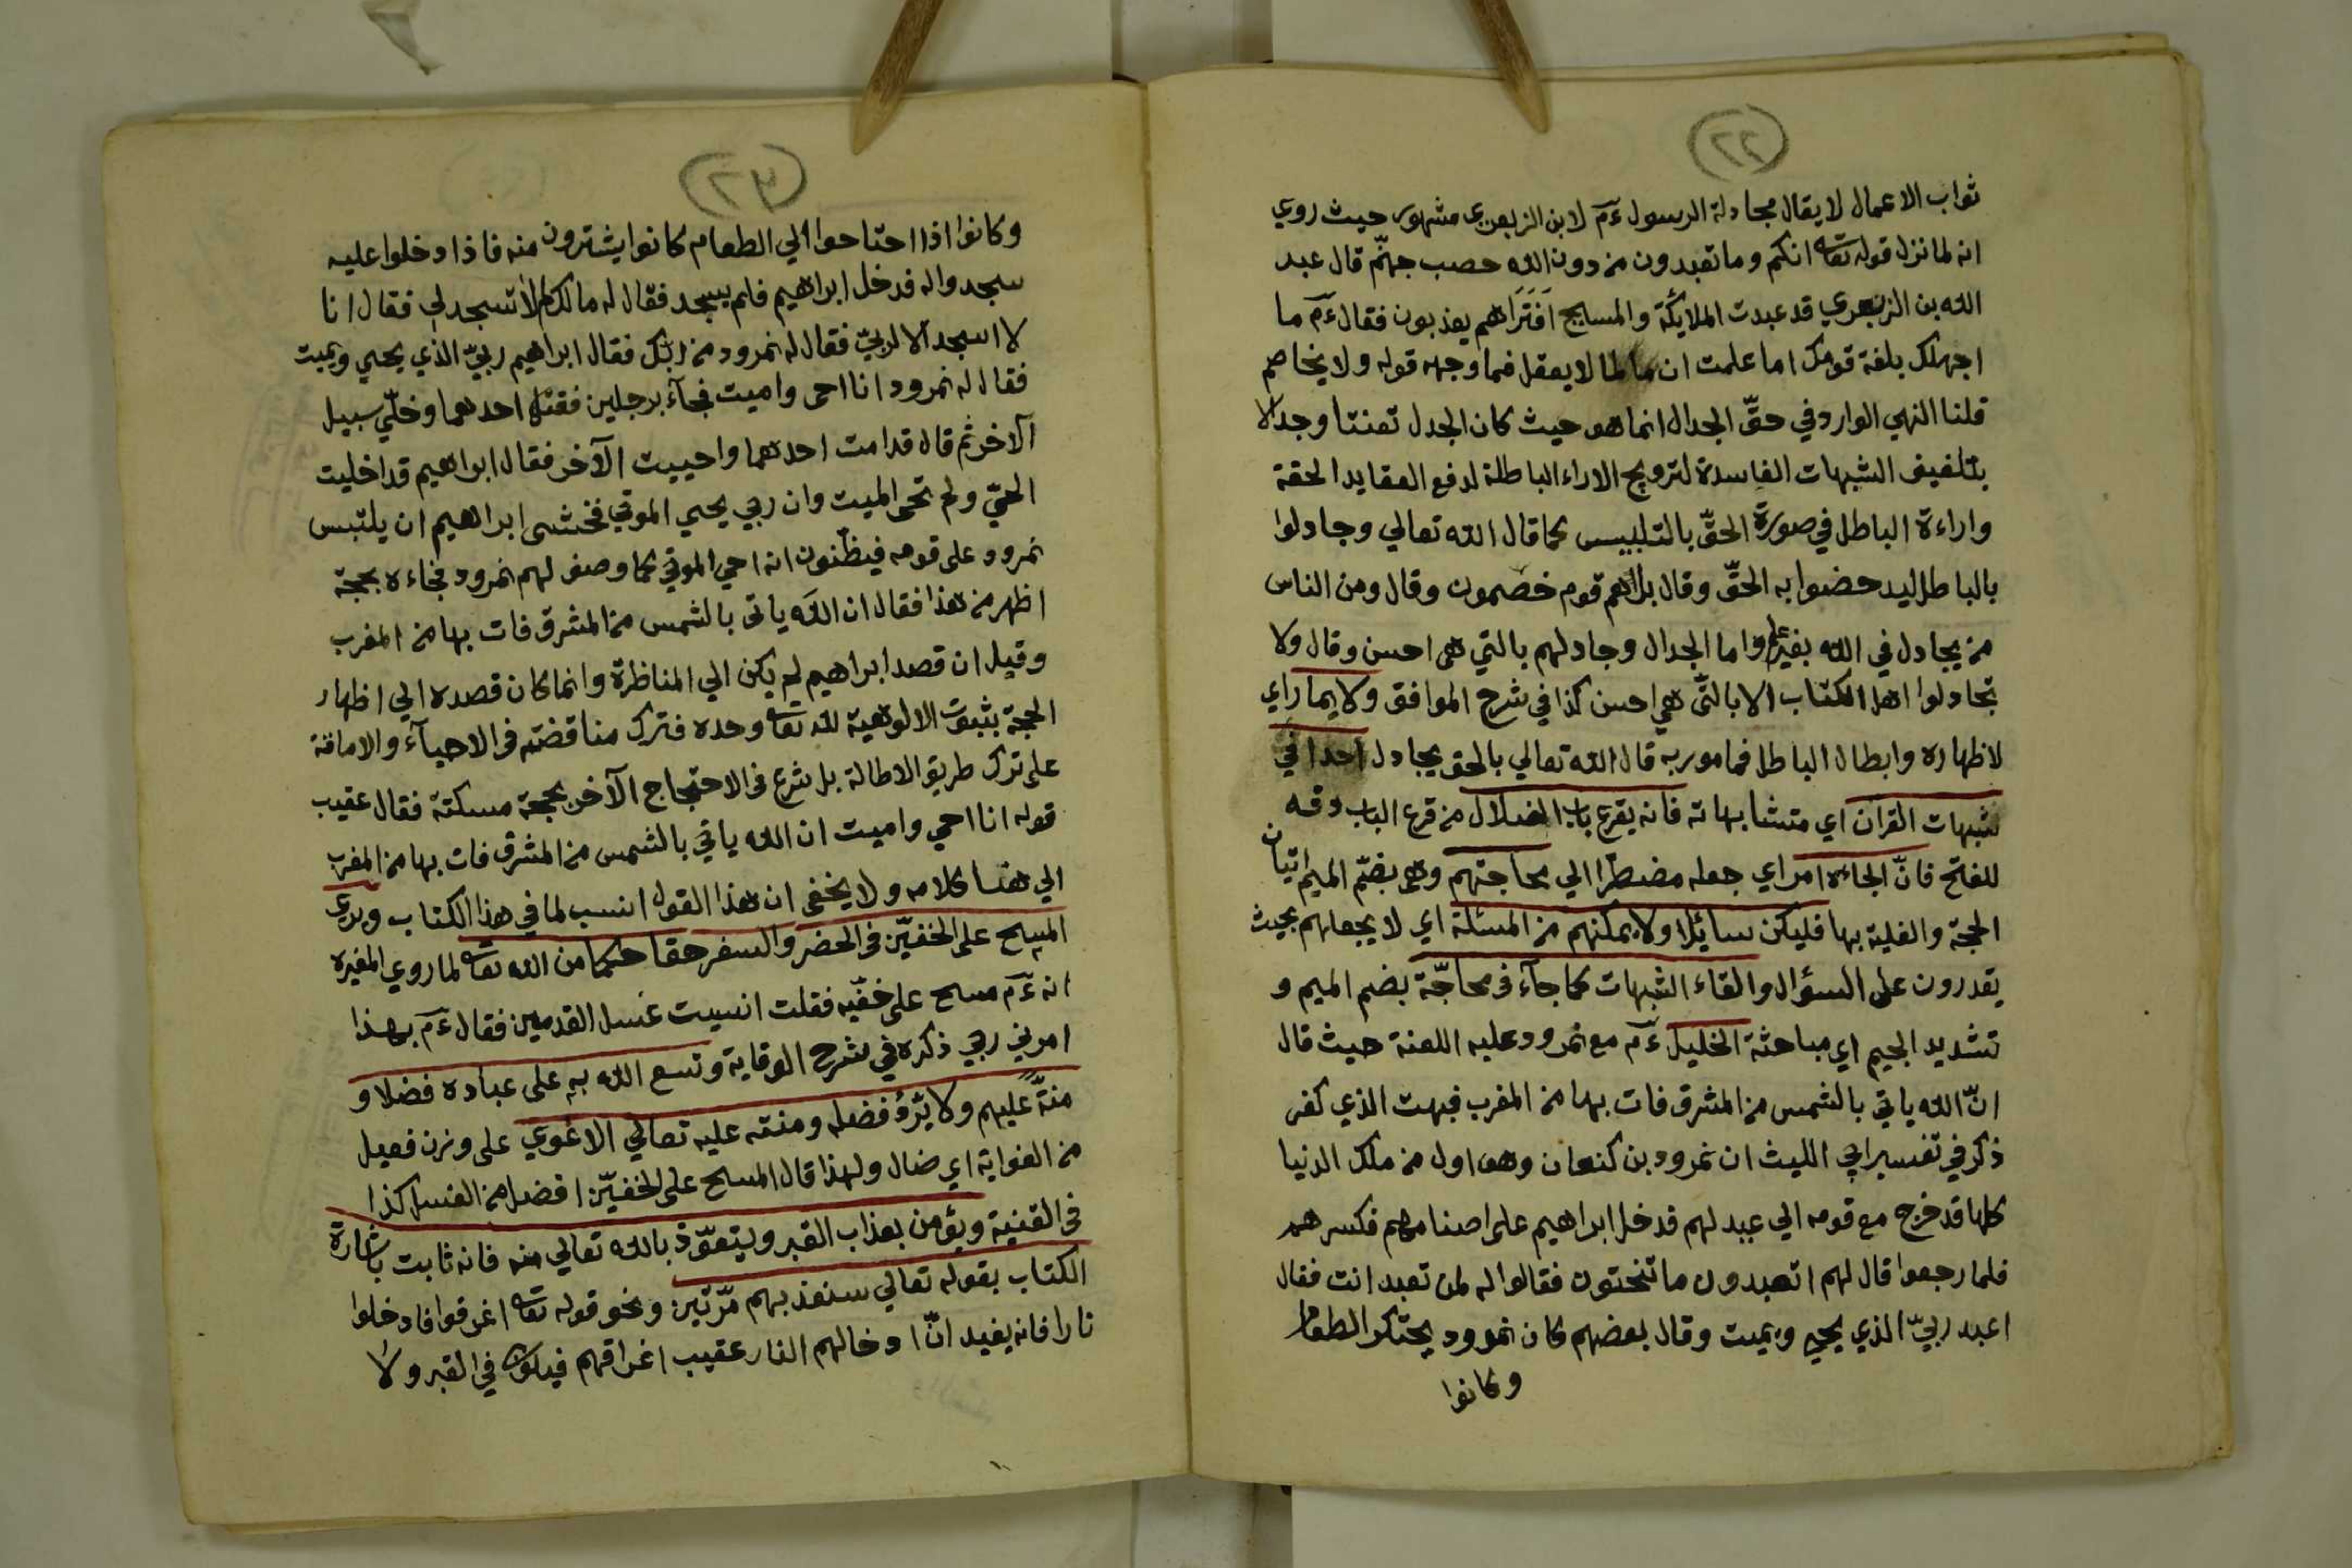 (٢٢)
ثواب الاعمال لا يقال مجادلة الرسول ءم لابن الزبعرى مشهور حيث روي
انه لما نزل قوله تعا انكم وما تعبدون من دون الله حصب جهنّم قال عبد
الله بن الزبعري قد عبدت الملايكة والمسايح اَفَتَرَاهم يعذبون فقال ءم ما
اجهلك بلغة قومك اما علمت ان ما لما لا يعقل فما وجه قوله ولا يخاصم
قلنا النهي الوارد في حقّ الجدال انما هو حيث كان الجدل تعنتا وجدالا
بتلفيف الشبهات الفاسدة لترويج الاراء الباطلة لدفع العقايد الحقة
واراءة الباطل في صورة الحقّ بالتلبيس كما قال الله تعالي وجادلوا
بالباطل ليدحضوا به الحقّ وقال بل هم قوم خصمون وقال ومن الناس
من يجادل في الله بغير علم واما الجدال وجادلهم بالتي هى احسن وقال ولا
تجادلوا اهل الكتاب الا بالتّي هي احسن كذا في شرح الموافق ولا يماراي
لاظهاره وابطال الباطل فمامور به قال الله تعالي بالحق يجادل احدا في
شبهات القران اي متشابهاته فانه يقرع باب الضلال من قرع الباب دقه
للفتح فانّ الجاءه امر اي جعله مضطرّا الي محاجتهم وهى بضمّ الميم اتيان
الحجة والغلبة بها فليكن سائلا ولا يمكنهم من المسئلة اي لا يجعلهم بحيث
يقدرون على السؤال والقاء الشبهات كما جآء في محاجّة بضم الميم و
تشديد الجيم اي مباحثة الخليل ءم مع نمرود عليه اللعنة حيث قال
انّ الله ياتي بالشمس من المشرق فات بها من المغرب فبهت الذي كفر
ذكر في تفسير ابي الليث ان نمرود بن كنعان وهو اول من ملك الدنيا
كلها قد خرج مع قومه الي عيد لهم فدخل ابراهيم على اصنامهم فكسرهم
فلما رجعوا قال لهم اتعبدون ما تنحتون فقالوا له لمن تعبد انت فقال
اعبد ربيّ الذي يحيي ويميت وقال بعضهم كان نمرود يحتكر الطعام
وكانوا
(٢٣)
وكانوا اذا احتاحوا الي الطعام كانوا يشترون منه فاذا دخلوا عليه
سجدوا له فدخل ابراهيم فلم يسجد فقال له مالك لا تسجد لي فقال انا
لا اسجد الا لربيّ فقال له نمرود من ربّك فقال ابراهيم ربيّ الذي يحيي ويميت
فقال له نمرود انا احى واميت فجآء برجلين فقتل احدهما وخلّي سبيل
الآخر ثم قال قد امت احدهما واحييت الآخر فقال ابراهيم قد اخليت
الحيّ ولم تحى الميت وان ربي يحيي الموتي فخشى ابراهيم ان يلتبس
نمرود على قومه فيظنّون انه احي الموتي كما وصف لهم نمرود فجاءه بحجة
اظهر من هذا فقال ان الله ياتى بالشمس من المشرق فات بها من المغرب
وقيل ان قصد ابراهيم لم يكن الي المناظرة وانما كان قصده الي اظهار
الحجة بثبوت الالوهية لله تعا وحده فترك مناقضته في الاحيآء والاماتة
على ترك طريق الاطالة بل شرع في الاحتجاج الآخر بحجة مسكتة فقال عقيب
قوله انا احي واميت ان الله ياتي بالشمس من المشرق فات بها من المغرب
الي هنا كلامه ولا يخفى ان هذا القول انسب لما في هذا الكتاب ويرى
المسح على الخفيّن في الحضر والسفر حقا حكما من الله تعا لما روي المغيرة
انه ءم مسح على خفّيه فقلت انسيت غسل القدمين فقال ءم بهذا
امرني ربي ذكره في شرح الوقاية وتسع الله به على عباده فضلا و
منةّ عليهم ولا يردّ فضله ومنته عليه تعالي الا غوي على وزن فعيل
من الغواية اي ضال ولهذا قال المسح على الخفيّن افضل من الغسل كذا
في القنية ويؤمن بعذاب القبر ويتعوّذ بالله تعالي منه فانه ثابت باشارة
الكتاب بقوله تعالي سنعذبهم مّرتين ونحو قوله تعا اغرقوا فادخلوا
نارا فانه يفيد انّ ادخالهم النار عقيب اغراقهم فيكون في القبر ولا